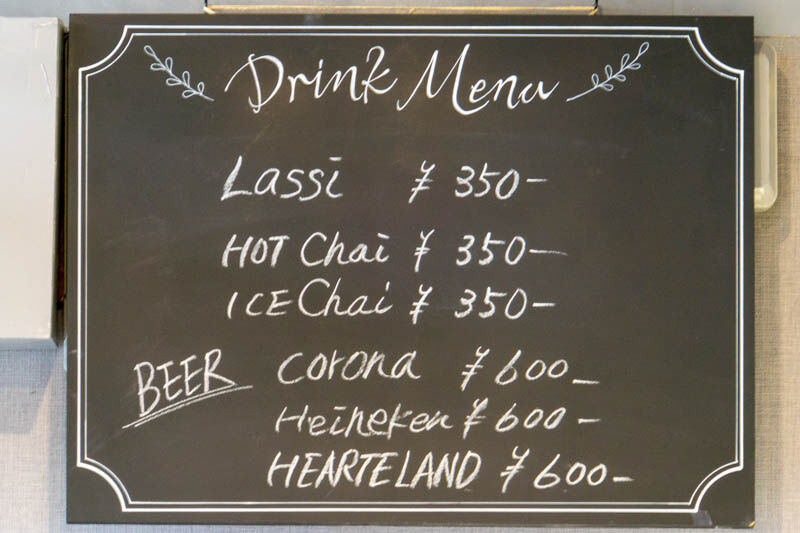 Drink Menu
Lassi ¥ 350-
HOT Chai ¥ 350-
ICE Chai ¥ 350-
BEER Corona ¥ 600-
Heineken ¥ 600-
HEARTELAND ¥ 600-